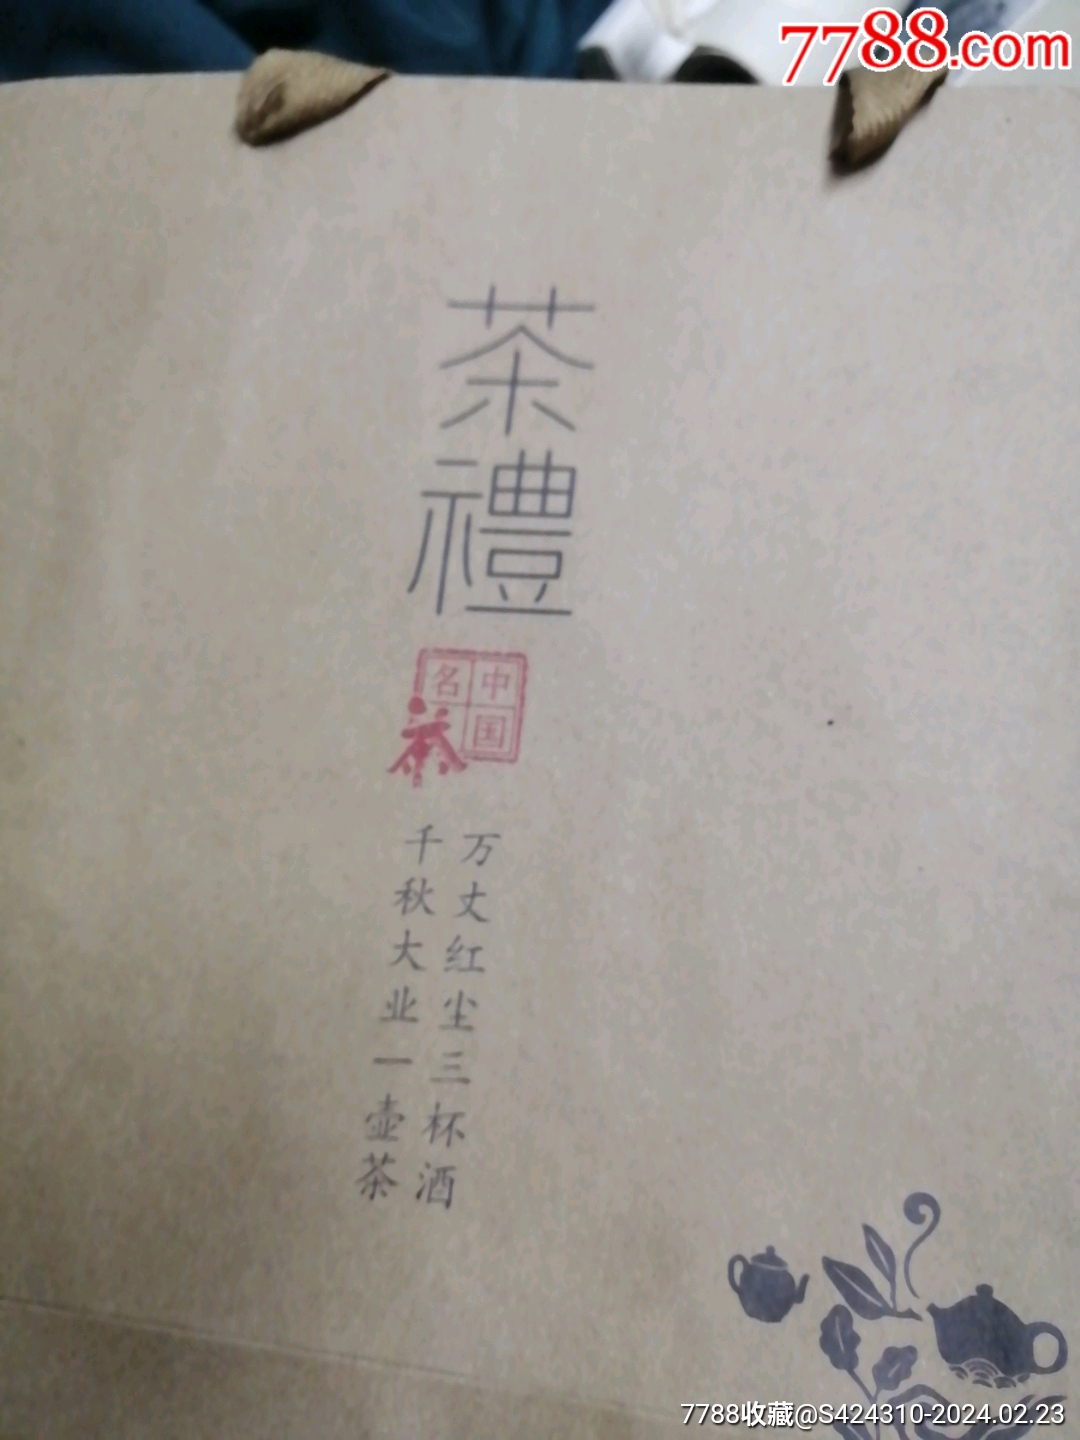 7788.com
茶禮
中国名茶
万丈红尘三杯酒
千秋大业一壶茶
7788收藏@S424310-2024.02.23